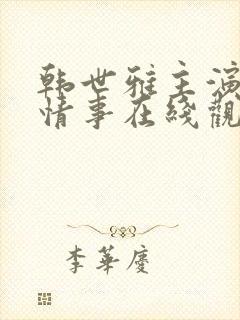 韩世雅主演
情事在綫觀
李華慶